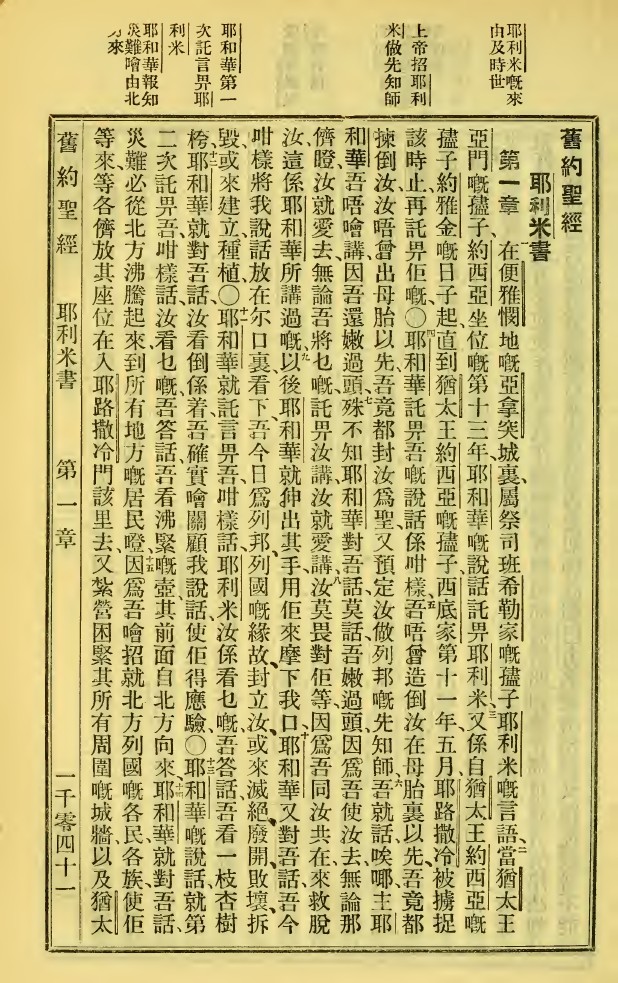 耶利米嘅來
由及時世
上帝招耶利
米做先知師
耶和華第一
次託言畀耶
利米
耶和華報知
災難噲由北
方來
舊約聖經
耶利米書
第一章 在便雅憫地嘅亞拿突城裏、屬祭司班希勒家嘅𡥧子耶利米嘅言語、二當猶太王
亞門嘅𡥧子約西亞坐位嘅第十三年、耶和華嘅說話託畀耶利米、三又係自猶太王約西亞嘅
𡥧子約雅金嘅日子起、直到猶太王約西亞嘅𡥧子西底家第十一年、五月、耶路撒冷被擄捉
該時止、再託畀佢嘅、〇四耶和華託畀吾嘅說話係咁樣、五吾唔曾造倒汝在母胎裏以先、吾竟都
揀倒汝、汝唔曾出母胎以先、吾竟都封汝爲聖、又預定汝做列邦嘅先知師、六吾就話、唉哪、主耶
和華、吾唔噲講、因吾還嫩過頭、七殊不知耶和華對吾話、莫話吾嫩過頭、因爲吾使汝去無論那
儕瞪、汝就愛去、無論吾將乜嘅託畀汝講、汝就愛講、八汝莫畏對佢等、因爲吾同汝共在來救脫
汝、這係耶和華所講過嘅、九以後耶和華就伸出其手、用佢來摩下我口、耶和華又對吾話、吾今
咁樣將我說話放在尔口裏、十看下、吾今日爲列邦、列國嘅緣故、封立汝、或來滅絕、廢開、敗壞、拆
毀、或來建立、種植、〇十一耶和華就託言畀吾咁樣話、耶利米汝係看乜嘅、吾答話、吾看一枝杏樹
桍、十二耶和華就對吾話、汝看倒係着、吾確實噲關顧我說話、使佢得應驗、〇十三耶和華嘅說話就第
二次託畀吾咁樣話、汝看乜嘅、吾答話、吾看沸緊嘅壺、其前面自北方向來、十四耶和華就對吾話、
災難必從北方沸騰起來、到所有地方嘅居民瞪、十五因爲吾噲招就北方列國嘅各民、各族、使佢
等來、等各儕放其座位在入耶路撒冷門該里去、又紮營困緊其所有周圍嘅城牆、以及猶太
舊約聖經 耶利米書 第一章 一千零四十一